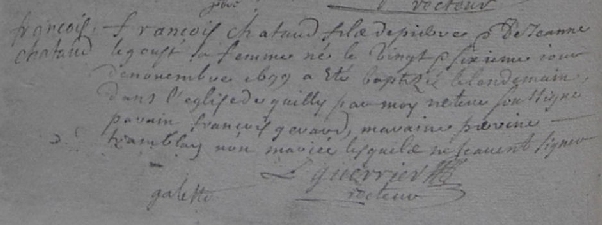 recteur
françois chataud
françois chataud fils de pierre & de Jeanne
legoust sa femme né le vingt & sixieme iour
de novembre 1699 a eté baptizé le lendemain
dans l'eglise de quilly par moy recteur soussigné
parain françois gerard, maraine perrine
tramblay non mariée lesquels ne scavent signer
L guerrier
galette recteur